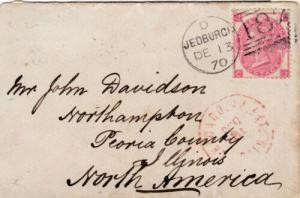 D
JEDBURGH
DE 13
70
184
Mr John Davidson
Northampton
Peoria County
Illinois
North America